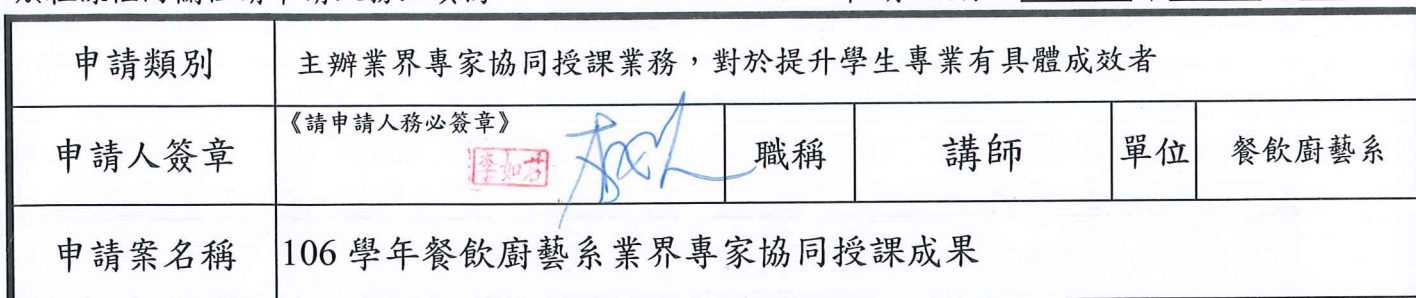 申請類別 主辦業界專家協同授課業務,對於提升學生專業有具體成效者
申請人簽章 《請申請人務必簽章》 李如芯 職稱 講師 單位 餐飲廚藝系
申請案名稱 106 學年餐飲廚藝系業界專家協同授課成果